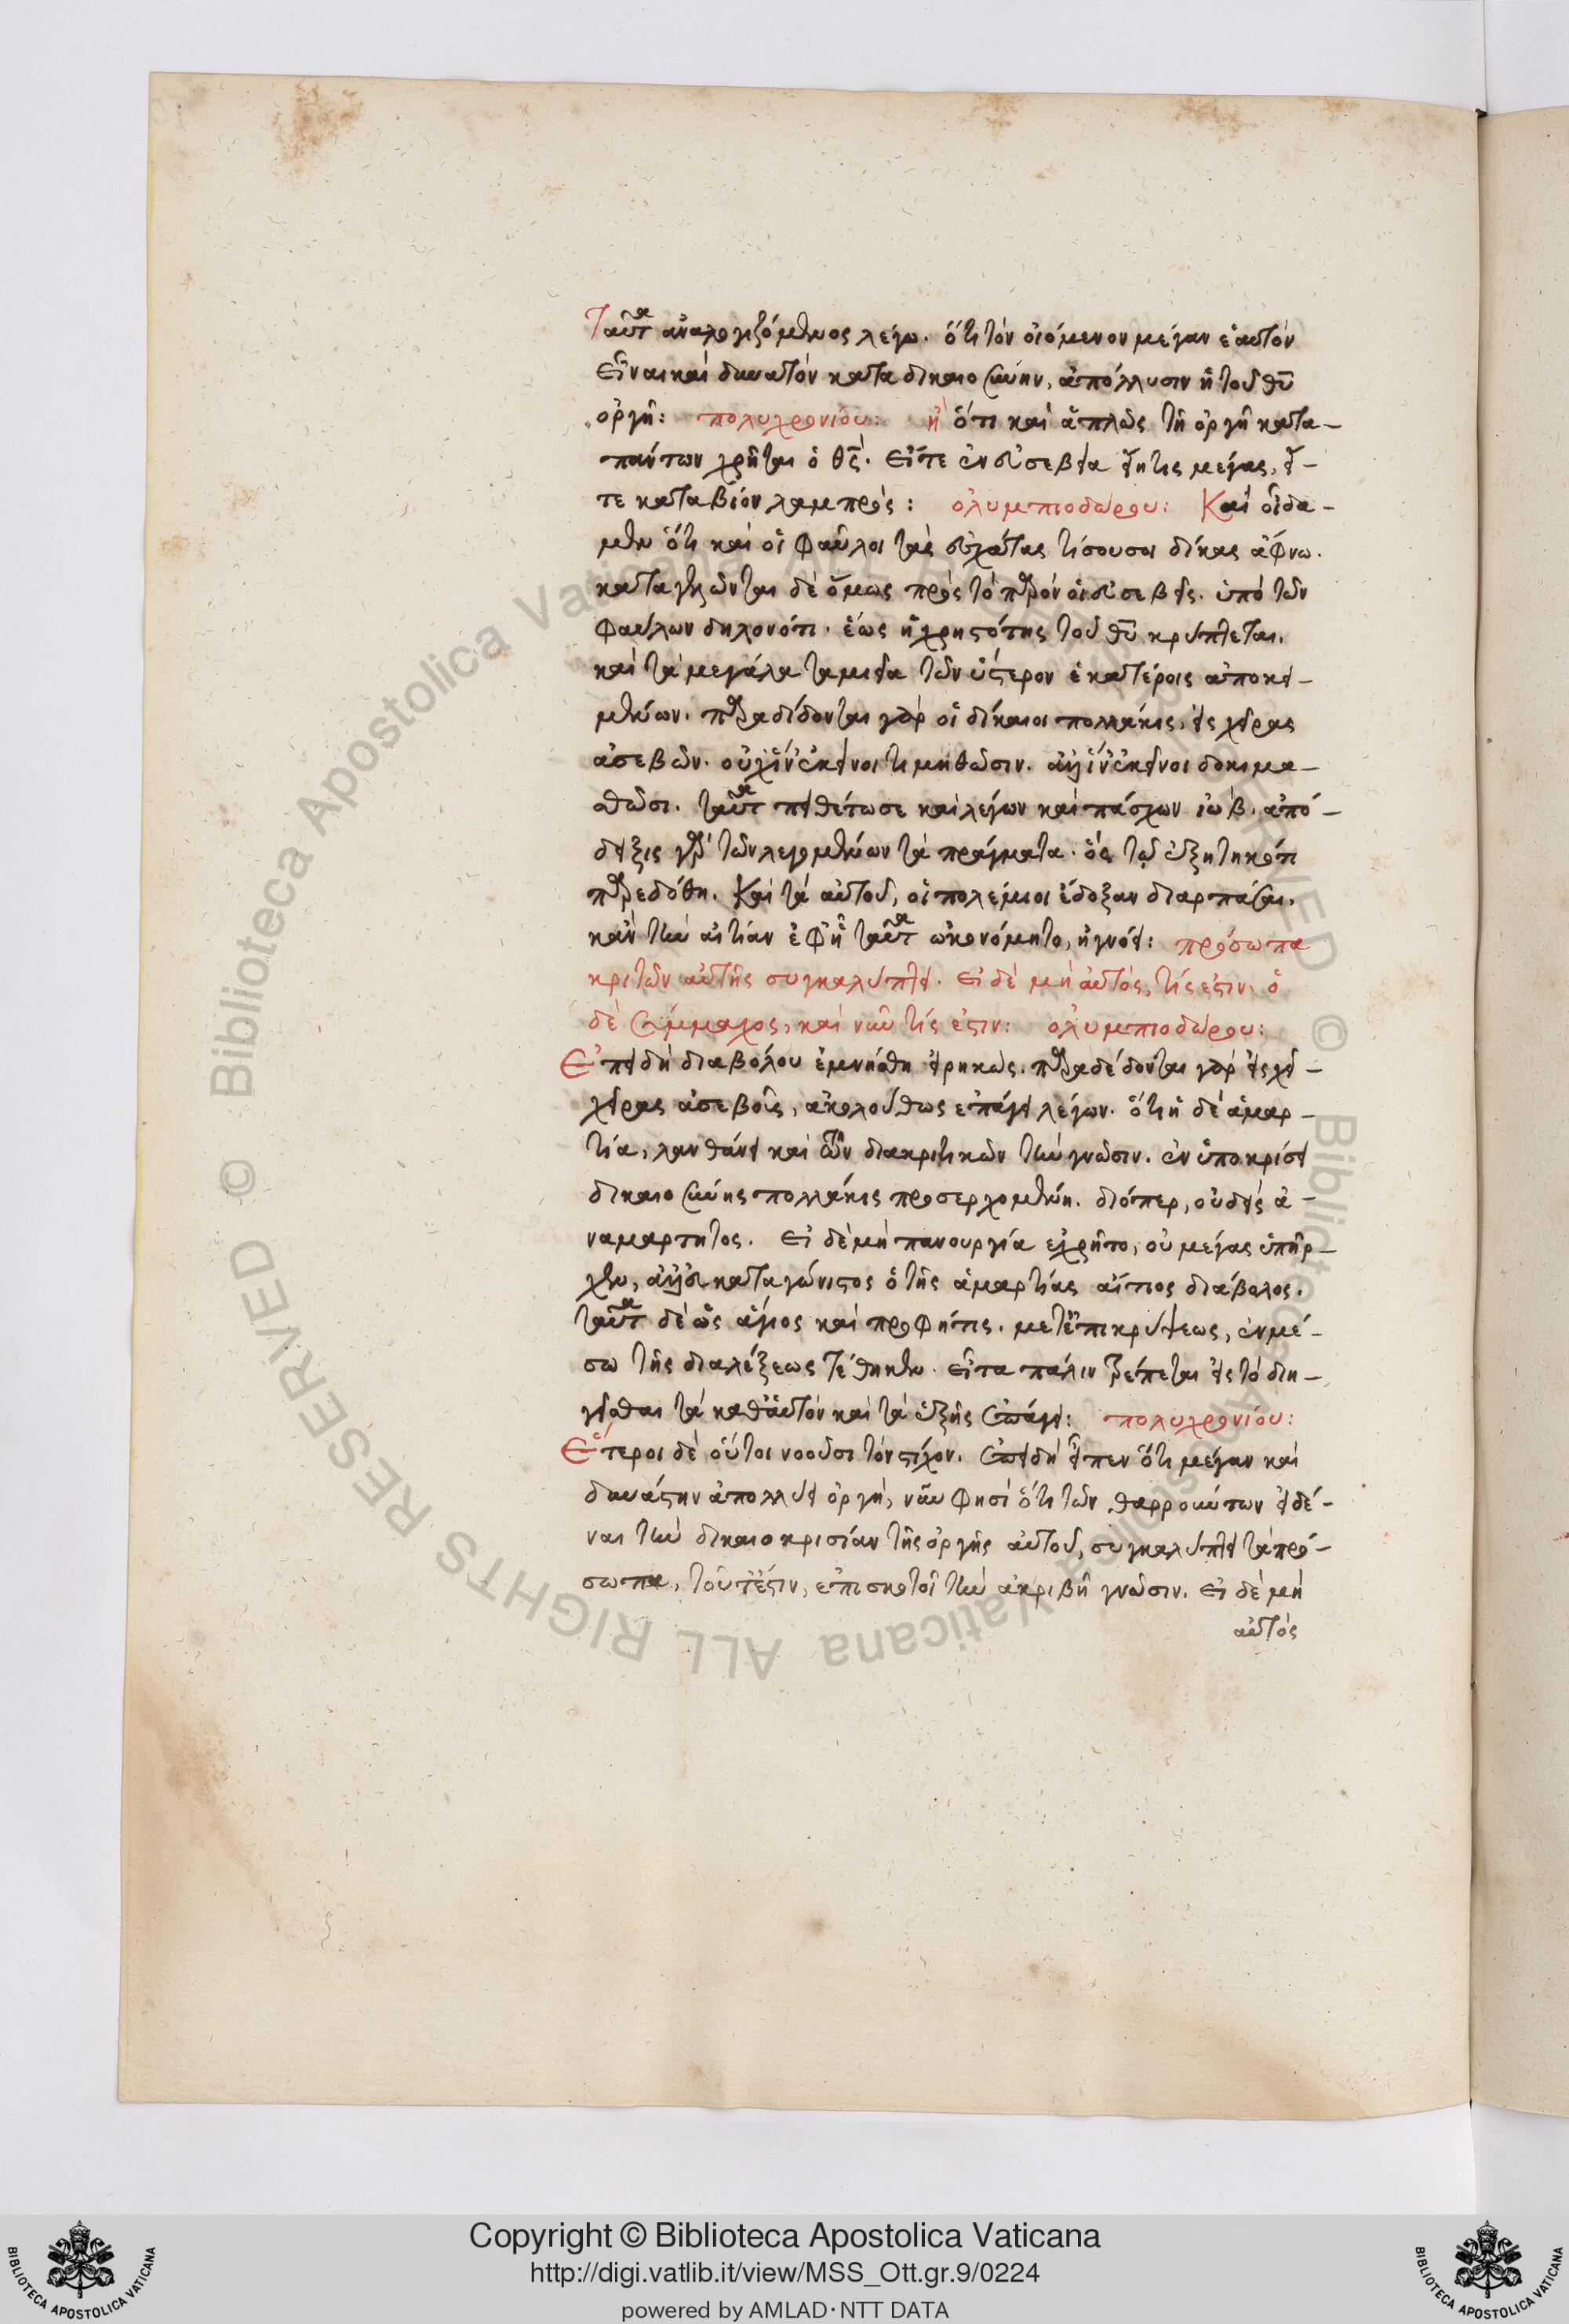 Ταῦτα ἀναλογιζόμενος λέγω. ὅτι τὸν οἰόμενον μέγαν ἑαυτὸν
εἶναι καὶ δυνατὸν κατὰ δικαιοσύνην, ἀπόλλυσιν ἡ τοῦ θυ
ὀργή: πολυχρονίου: ἢ ὅτι καὶ ἁπλῶς τῇ ὀργῇ κατα-
πάντων χρῆται ὁ θς. εἴτε ἐν εὐσεβεία εἴη τις μέγας, εἴ-
τε κατα βίον λαμπρός: ὀλυμπιοδώρου: Καὶ οἶδα-
μεν ὅτι καὶ οἱ φαῦλοι τὰς ἐσχάτας τίσουσι δίκας ἄφνω.
καταγελῶνται δὲ ὅμως πρὸς τὸ παρὸν οἱ εὐσεβεῖς. ὑπὸ τῶν
φαύλων δηλονότι. ἕως ἡ χρηστότης τοῦ θυ κρύπτεται.
καὶ τὰ μεγάλα ταμιεῖα τῶν ὕστερον ἑκατέροις ἀποκει-
μένων. παραδίδονται γὰρ οἱ δίκαιοι πολλάκις, εἰς χεῖρας
ἀσεβῶν. οὐχ ἵν' ἐκεῖνοι τιμηθῶσιν. ἀλλ' ἵν' ἐκεῖνοι δοκιμα-
σθῶσι. ταῦτα πειθέτωσε καὶ λέγων καὶ πάσχων ἰώβ. ἀπό-
δειξις γὰρ τῶν λεγομένων τὰ πράγματα. ὃς τῷ ἐξητηκότι
παρεδόθη. Καὶ τὰ αὐτοῦ, οἱ πολέμιοι ἔδοξαν διαρπάσαι.
κἂν τὴν αἰτίαν ἐφ' ᾗ ταῦτα ὠκονόμητο, ἠγνόει: πρόσωπα
κριτῶν αὐτῆς συγκαλύπτει. εἰ δὲ μὴ αὐτός, τίς ἐστιν. ὁ
δὲ σύμμαχος, καὶ νῦν τίς ἐστιν: ὀλυμπιοδώρου:
Ἐπειδὴ διαβόλου ἐμνήσθη εἰρηκώς. παραδέδονται γὰρ εἰς χεῖ-
χεῖρας ἀσεβοῦς, ἀκολούθως ἐπάγει λέγων. ὅτι ἡ δὲ ἁμαρ-
τία, λανθάνει καὶ τῶν διακριτικῶν τὴν γνῶσιν. ἐν ὑποκρίσει
δικαιοσύνης πολλάκις προσερχομένη. διόπερ, οὐδεὶς ἀ-
ναμαρτητος. εἰ δὲ μὴ πανουργία ἐχρῆτο, οὐ μέγας ὑπῆρ-
χεν, ἀλλ' εὐκαταγώνιστος ὁ τῆς ἁμαρτίας αἴτιος διάβολος.
ταῦτα δὲ ὡς ἅγιος καὶ προφήτης. μετ' ἐπικρύψεως, ἐν μέ-
σω τῆς διαλέξεως τέθηκεν. εἶτα πάλιν τρέπεται εἰς τὸ διη-
γεῖσθαι τὰ καθ' ἑαυτὸν καὶ τὰ ἑξῆς ἐπάγει: πολυχρονίου:
Ἕτεροι δὲ οὕτοι νοοῦσι τὸν στίχον. ἐπειδὴ εἶπεν ὅτι μέγαν καὶ
δυνάστην ἀπολλύει ὀργή, νῦν φησὶ ὅτι τῶν θαρρούντων εἰδέ-
ναι τὴν δικαιοκρισίαν τῆς ὀργῆς αὐτοῦ, συγκαλύπτει τὰ πρό-
σωπα, τοῦτέστιν, ἐπισκοτοῖ τὴν ἀκριβῆ γνῶσιν. εἰ δὲ μὴ
αὐτός
Copyright © Biblioteca Apostolica Vaticana
http://digi.vatlib.it/view/MSS_Ott.gr.9/0224
powered by AMLAD·NTT DATA
© Biblioteca Apostolica Vaticana ALL RIGHTS RESERVED
BIBLIOTECA APOSTOLICA VATICANA
BIBLIOTECA APOSTOLICA VATICANA